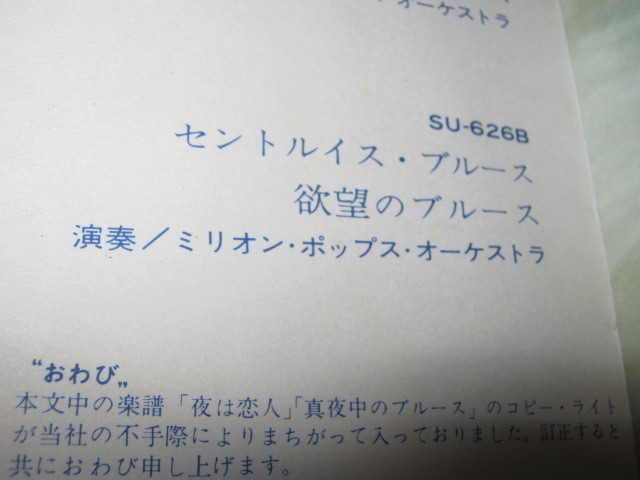 ・オーケストラ
SU-626B
セントルイス・ブルース
欲望のブルース
演奏／ミリオン・ポップス・オーケストラ
“おわび„
本文中の楽譜「夜は恋人」「真夜中のブルース」のコピー・ライト
が当社の不手際によりまちがって入っておりました。訂正すると
共におわび申し上げます。